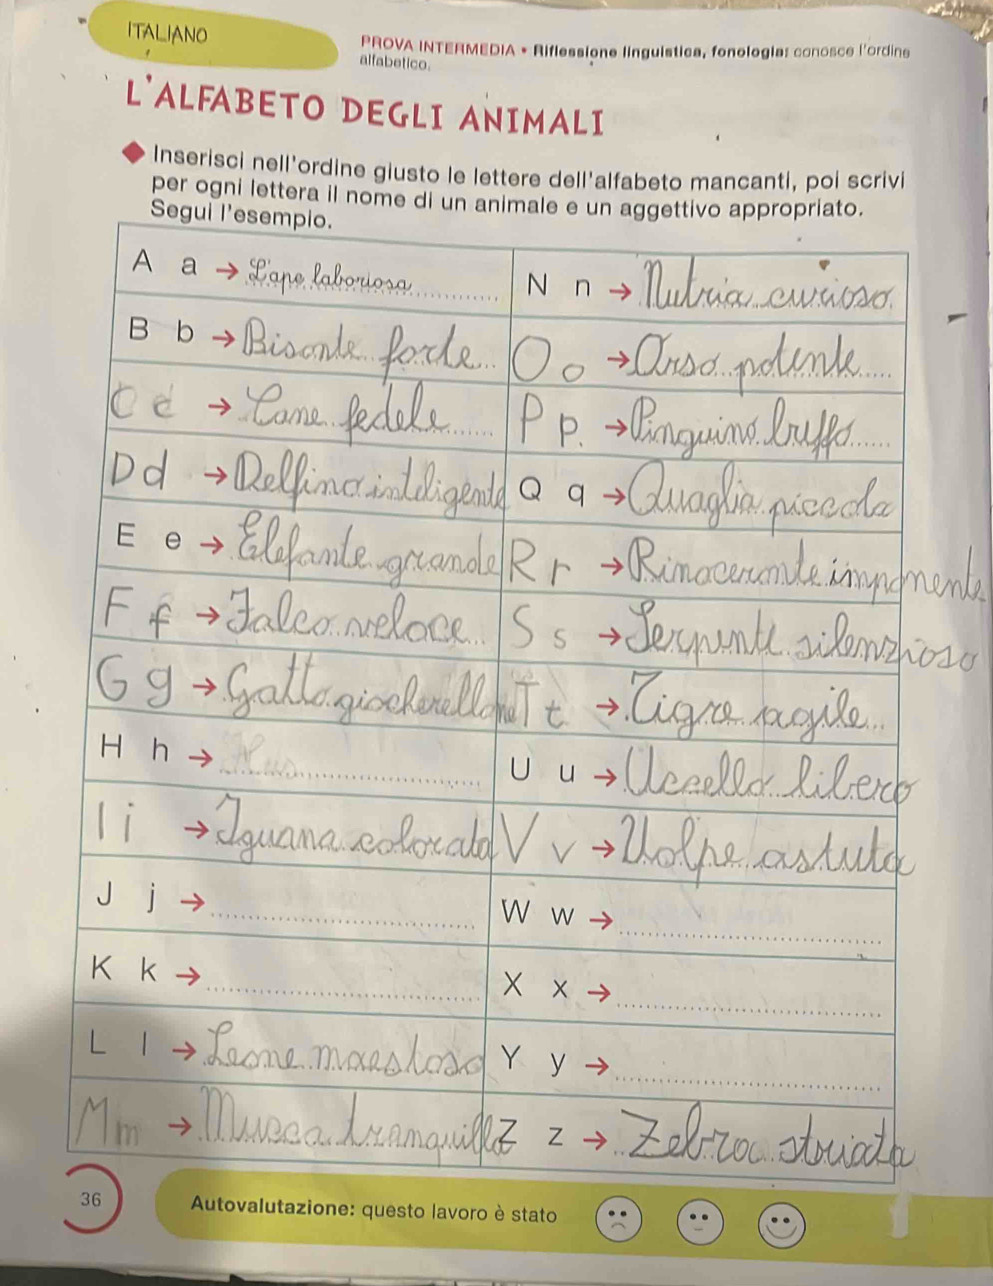 ITALIANO
PROVA INTERMEDIA • Riflessione linguistica, fonologia: conosce l'ordine
alfabetico.
L'ALFABETO DEGLI ANIMALI
Inserisci nell'ordine giusto le lettere dell'alfabeto mancanti, poi scrivi
per ogni lettera il nome di un animale e un aggettivo appropriato.
Segui l'esempio.
A a → L'ape laboriosa
B b → Bisonte forte
C c → Cane fedele
D d → Delfino intelligente
E e → Elefante grande
F f → Falco veloce
G g → Gatto giocherellone
H h →
I i → Iguana colorata
J j →
K k →
L l → Leone maestoso
M m → Mucca tranquilla
N n → Nutria curioso
O o → Orso potente
P p. → Pinguino buffo
Q q → Quaglia piccola
R r → Rinoceronte imponente
S s → Serpente silenzioso
T t → Tigre agile
U u → Uccello libero
V v → Volpe astuta
W w →
X x →
Y y →
Z z → Zebra striata
36
Autovalutazione: questo lavoro è stato